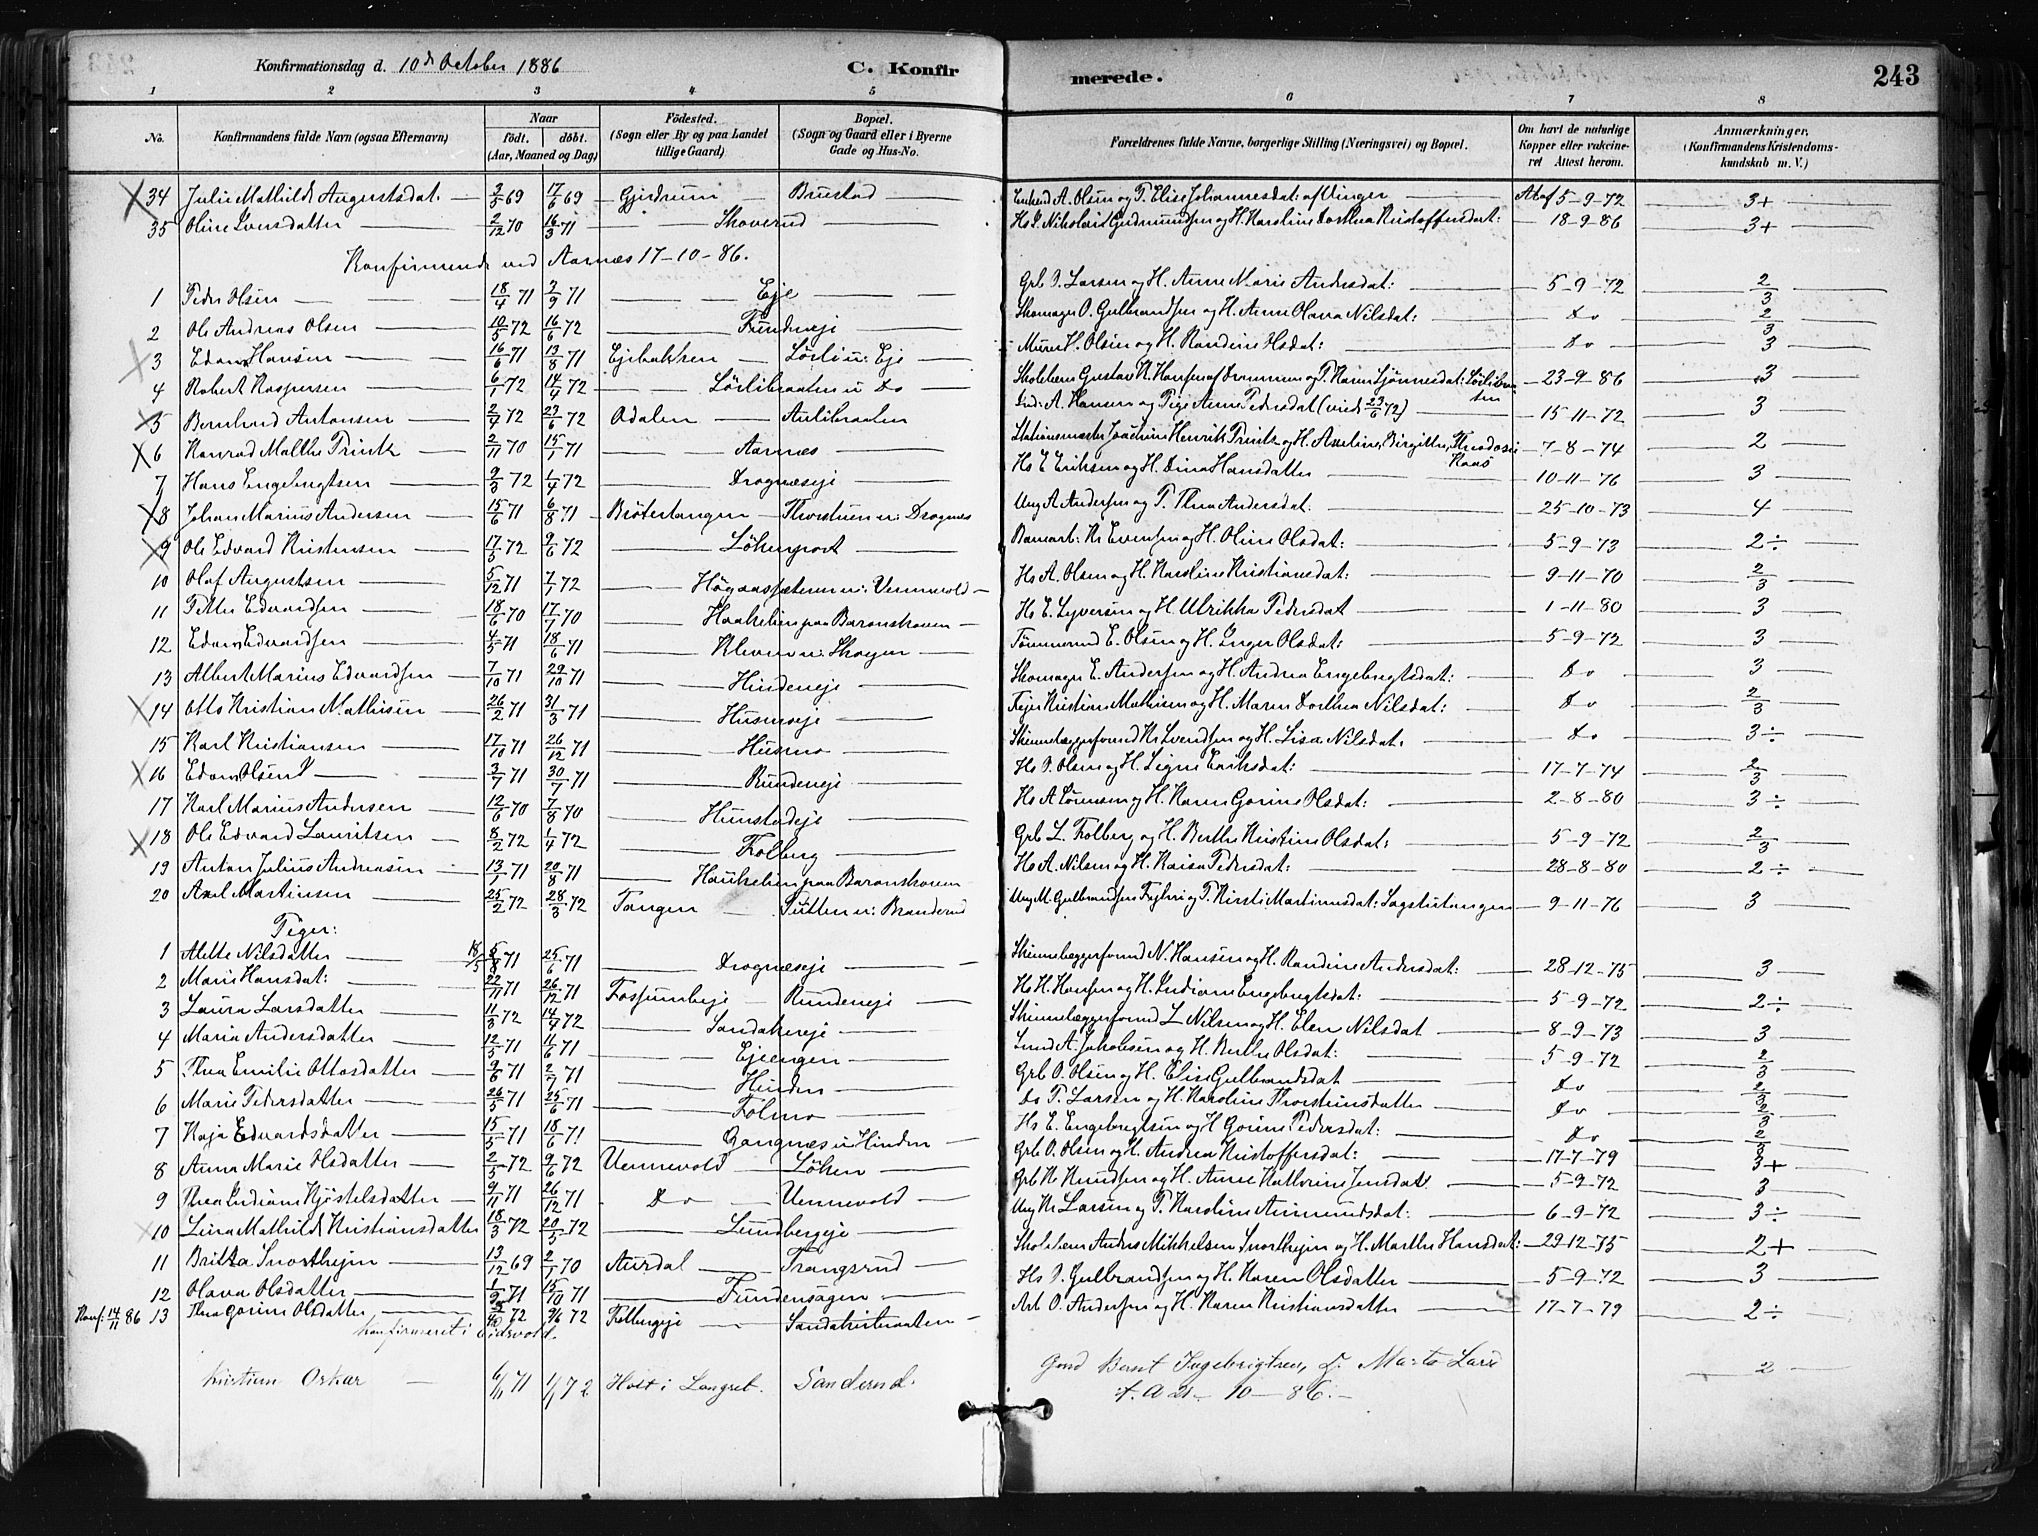 Konfirmationsdag d. 10de October 1886 C. Konfirmerede. 243
1 2 3 4 5 6 7 8
No. Konfirmandens fulde Navn (ogsaa Efternavn) Naar født. døbt. (Aar, Maaned og Dag) Fødested. (Sogn eller By og paa Landet tillige Gaard) Bopæl. (Sogn og Gaard eller i Byerne Gade og Hus-No. Forældrenes fulde Navne, borgerlige Stilling (Næringsvei) og Bopæl. Om havt de naturlige Kopper eller vaccineret Attest herom. Anmærkninger. (Konfirmandens Kristendomskundskab m. V.)
34 Julie Mathilde Augustsdat. 3/5 69 17/6 69 Gjerdrum Brustad Enkmd A. Olsen og P. Elise Johannesdat: af Vinger At af 5-9-72 3+
35 Oline Iversdatter 2/12 70 16/3 71 Skoverud Hs I. Nikolai Gudmundsen og H. Karoline Dorthea Kristoffersdat: 18-9-86 3+
Konfirmerede ved Aarnæs 17-10-86.
1 Peder Olsen 18/4 71 3/9 71 Eje Grb O. Larsen og H. Anne Marie Andersdat: 5-9-72 2/3
2 Ole Andreas Olsen 10/5 72 16/6 72 Fundeneje Skomager O. Gulbrandsen og H. Anne Olava Nilsdat: Do 2/3
3 Edvin Hansen 16/6 71 13/8 71 Ejebakken Lörli u: Eje Murer H. Olsen og H. Randine Olsdat: Do 3
4 Robert Kaspersen 6/1 72 14/4 72 Lörlibraaten u Do Skoleh Gustav K. Hansen af Drammen og P. Karen Sjønnesdat: Lörlibraaten 23-9-86 3
5 Bernhard Antonsen 2/4 72 23/6 72 Odalen Aulibraaten Ind: A. Hansen og Pige Anne Pedersdat (viede 23/6 72) 15-11-72 3
6 Konrad Malthe Printz 2/11 70 15/1 71 Aarnæs Stationsmester Joachim Henrik Printz og H. Axeline, Birgitte, Theodosie Kaas 7-8-74 2
7 Hans Engebregtsen 9/3 72 1/4 72 Drognæseje Hs E Eriksen og H. Dina Hansdatter 10-11-76 3
8 Johan Marius Andersen 15/6 71 6/8 71 Brøtertangen Thorstuen u: Drognæs Ung A. Andersen og P. Thea Andersdat. 25-10-73 4
9 Ole Edvard Kristensen 17/5 72 9/6 72 Lökenport Banearb: Kr Evensen og H. Oline Olsdat: 5-9-73 2÷
10 Olaf Augustsen 5/12 71 7/1 72 Högaassæteren u: Vennevold Hs A. Olsen og H. Karoline Kristiansdat: 9-11-70 2/3
11 Petter Edvardsen 18/6 70 17/7 70 Haukelien paa Baronskoven Hs E. Syversen og H. Ulrikka Pedersdat 1-11-80 3
12 Edvin Edvardsen 4/5 71 18/6 71 Kleven u: Skogen Tømmermd E. Olsen og H. Inger Olsdat: 5-9-72 3
13 Albert Marius Edvardsen 7/10 71 29/10 71 Hindeneje Skomager E. Andersen og H. Andrea Engebregtsdat: Do 3
14 Otto Kristian Mathisen 26/2 71 31/3 71 Husmoeje Fejer Kristian Mathisen og H. Maren Dorthea Nilsdat: Do 2/3
15 Karl Kristiansen 17/10 71 26/12 71 Husmo Skinnelæggerformd Kr Svendsen og H. Lisa Nilsdat: Do 3÷
16 Edvin Olsen 3/7 71 30/7 71 Rundeneje Hs O. Olsen og H. Signe Eriksdat: 17-7-74 2/3
17 Karl Marius Andersen 12/6 70 7/8 70 Hunstadeje Hs A Lönesen og H. Karen Gorine Olsdat: 2-8-80 3÷
18 Ole Edvard Lauritsen 8/2 72 1/4 72 Folberg Grb L. Folberg og H. Berthe Kristine Olsdat: 5-9-72 2/3
19 Anton Julius Andreasen 13/1 71 20/8 71 Haukelien paa Baronskoven Hs A. Nilsen og H. Kaisa Pedersdat: 28-8-80 2÷
20 Axel Martinsen 25/2 72 28/3 72 Tangen Putten u: Branderud Ung M. Gulbrandsen og P. Kirsti Martinusdat: Sagstutangen 9-11-76 3
Piger:
1 Alette Nilsdatter 18/5 71 25/6 71 Drognæseje Skinnelæggerformd N. Hansen og H. Randine Andersdat: 28-12-75 3
2 Marie Hansdat: 22/11 71 26/12 71 Fossumbeje Rundeneje Hs H. Hansen og H. Indiane Engebregtsdat: 5-9-72 2÷
3 Laura Larsdatter 11/3 72 14/4 72 Sandakereje Skinnelæggerformd L Nilsen og H. Elen Nilsdat 8-9-73 3
4 Maria Andersdatter 12/5 71 11/6 71 Ejeengen Smed A. Jakobsen og H. Berthe Olsdat: 5-9-72 2/3
5 Thea Emilie Ottosdatter 9/6 71 2/7 71 Hinden Grb O. Olsen og H. Elise Gulbrandsdat Do 2/3
6 Marie Pedersdatter 26/5 71 25/6 71 Folmo Do P. Larsen og H. Karoline Thorstensdatter Do 2/3
7 Kaja Edvardsdatter 15/5 71 18/6 71 Gangnæs u Hinden Hs E. Engebregtsen og H Gorine Pedersdat: Do 2/3
8 Anna Marie Olsdatter 2/5 72 9/6 72 Vennevold Löken Grb O. Olsen og H. Andrea Kristoffersdat: 17-7-79 3+
9 Thea Indiane Kjöstelsdatter 9/11 71 26/12 71 Do Vennevold Grb K Knudsen og H. Anne Kathrine Jensdat: 5-9-72 3
10 Lina Mathilde Kristiansdatter 18/3 72 20/5 72 Lundbergeje Ung Kr Larsen og P. Karoline Amundsdat: 6-9-72 3÷
11 Britta Snorthejm 13/12 69 2/1 70 Aurdal Frangsrud Skoleh Anders Mikkelsen Snorthejm og H. Marthe Hansdat: 29-12-75 2+
12 Olava Olsdatter 1/9 71 15/10 71 Fundensagen Hs O. Gulbrandsen og H. Karen Olsdatter 5-9-72 3
Konf: 14/11 86 13 Thea Gorine Olsdatter 72 9/6 72 Folbergeje Sandakerbraaten Arb O. Andersen og H. Karen Kristiansdatter 17-7-79 2÷
konfirmeret i Eidsvold.
Kristian Oskar 6/11 71 1/1 72 Holt i Langset. Sanderud. Gmd Bernt Ingebrigtsen, Marte Lars 2
A 21-10-86.